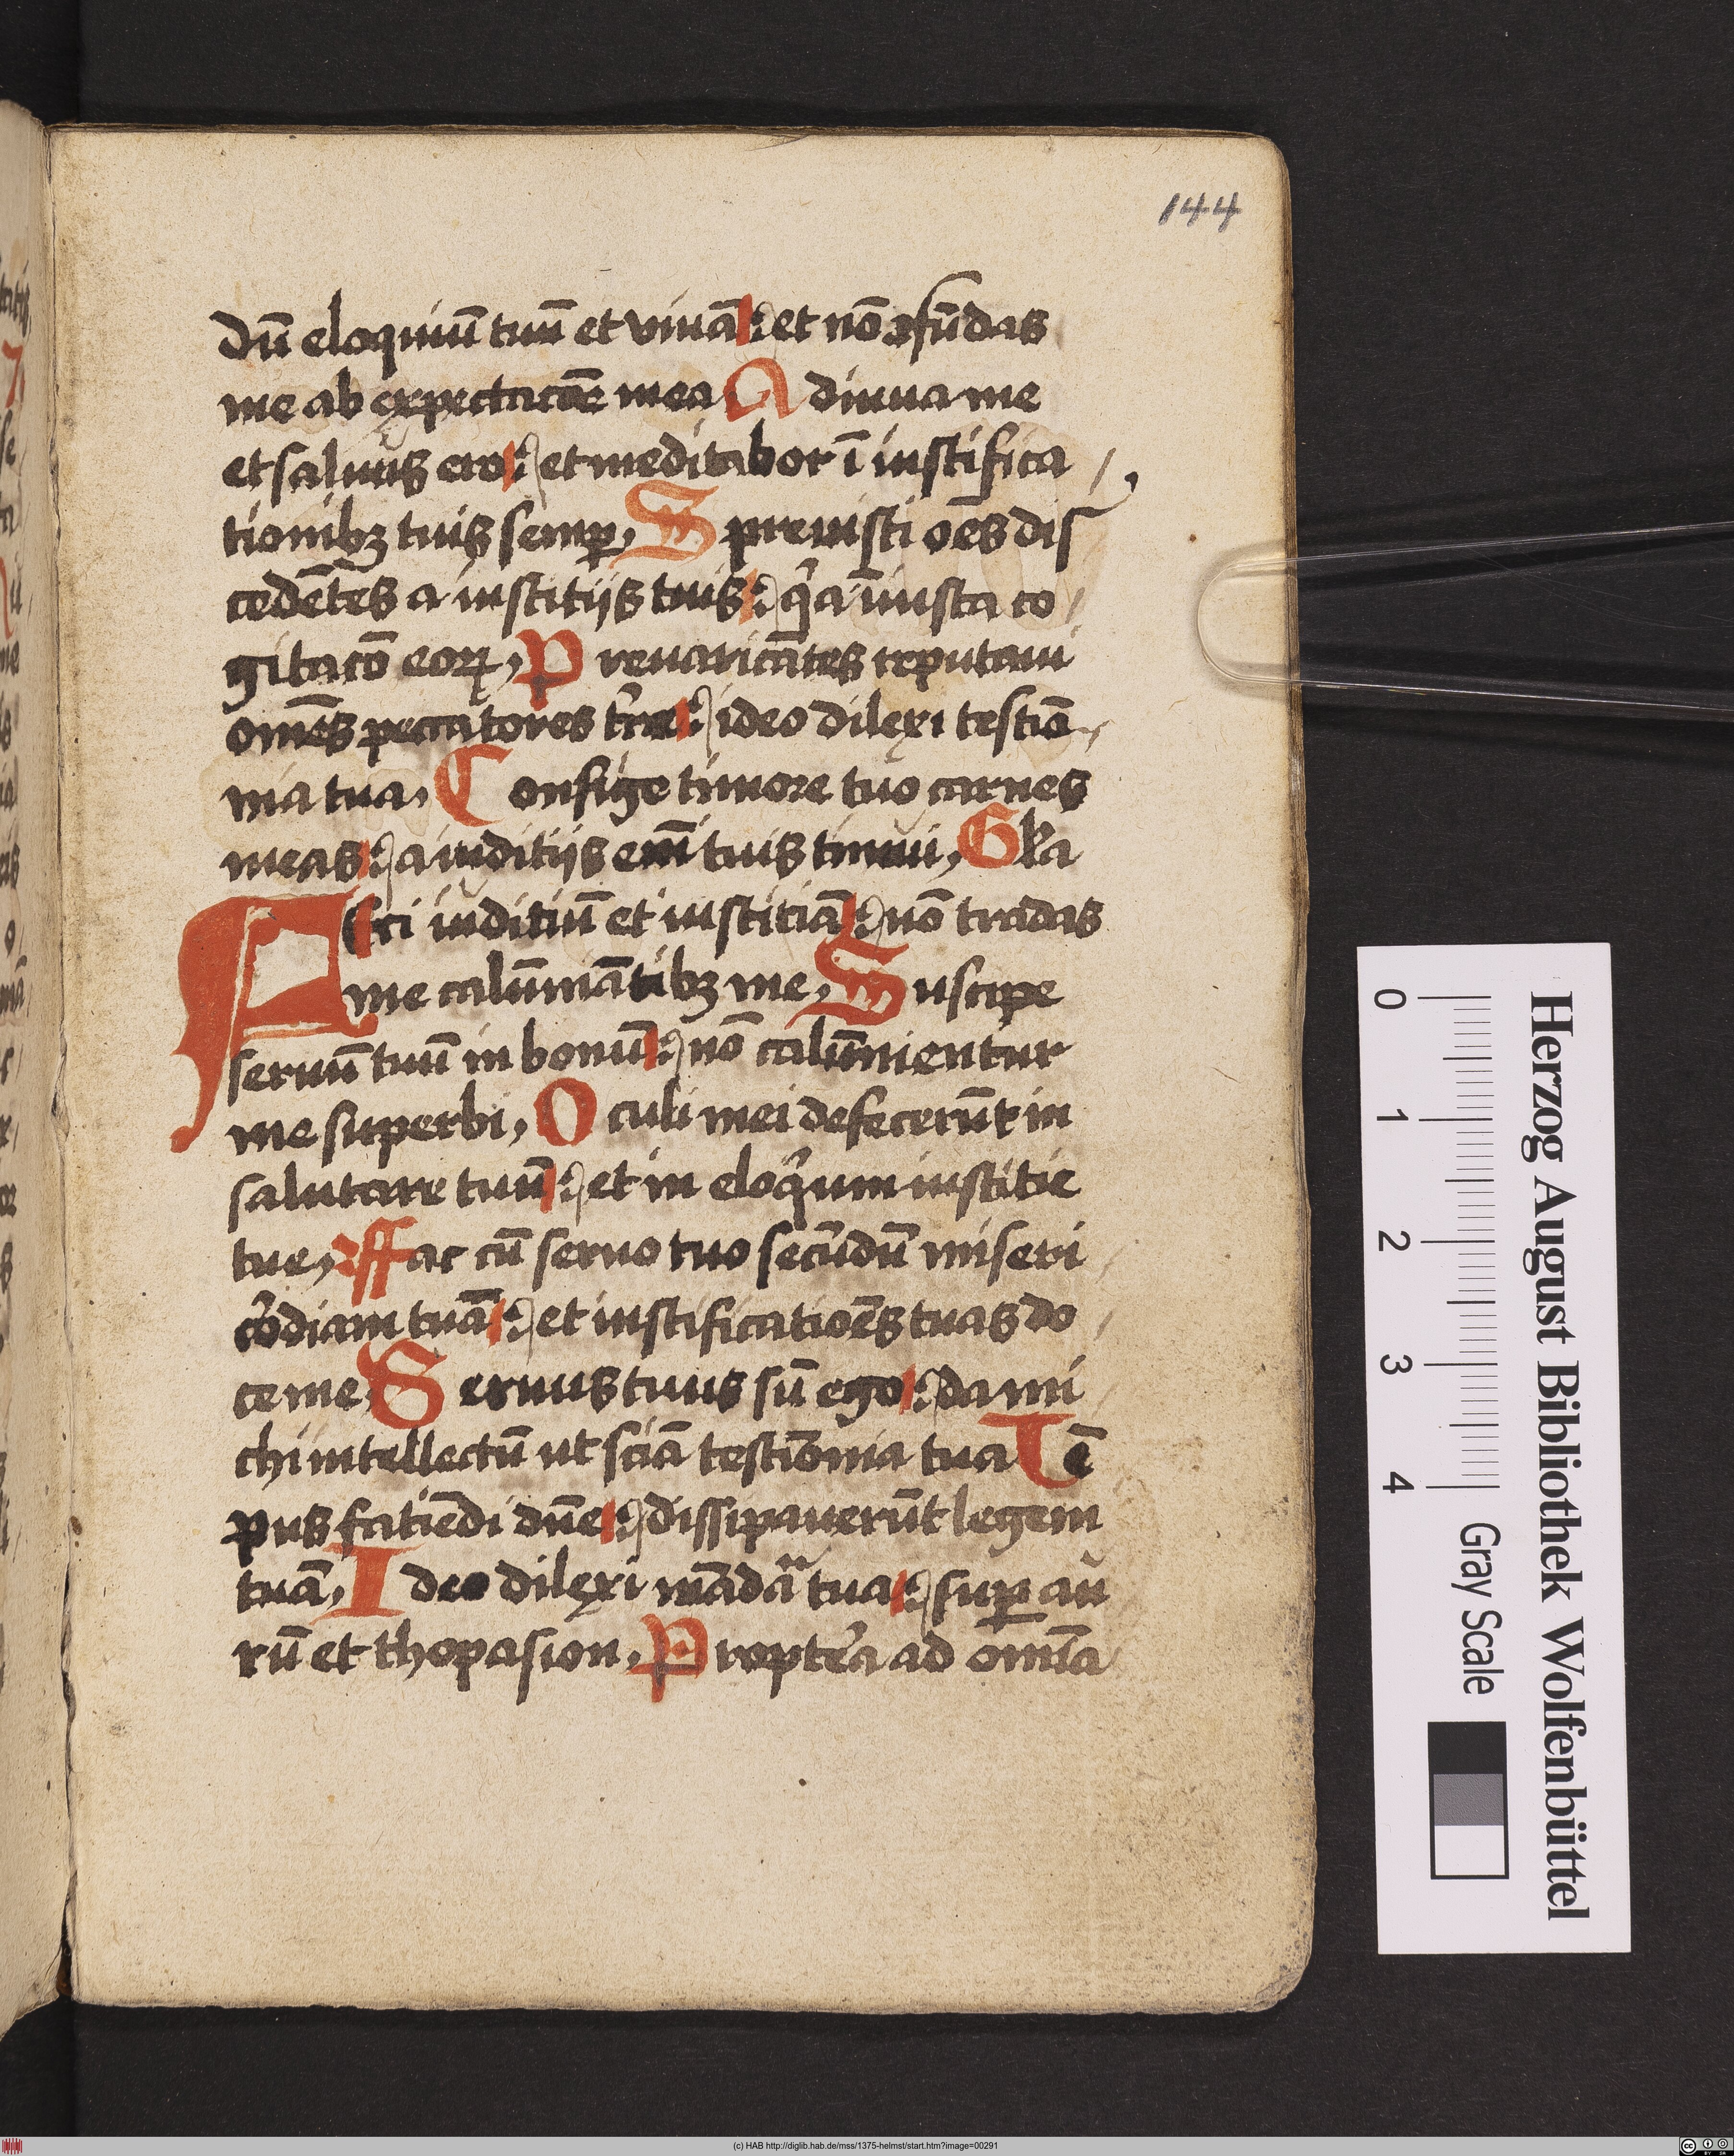 144
dū eloquiuſ tuū et viuā : et nō ꝯfūdas
me ab expectacōe mea A diuua me
et saluus ero : et meditabor ī iustifica
tionibꝫ tuis semꝑ, S preuisti oēs dis
cedētes a iustitijs tuis : qͥa īiusta co
gitacō eoꝝ, P reuaricātes reputaui
omēs peccatores tr̄re : ideo dilexi testiō
nia tua, C onfige timore tuo carnes
meas : a iuditijs em̄ tuis timui, Gl̄a
F Eci iuditiū et iustitiā : nō tradas
me calūniātibꝫ me, S uscipe
seruū tuū in bonū : nō calūmnientur
me superbi, O culi mei defecerūt in
salutare tuū : et in eloqͥum iustitie
tue, ff ac cū seruo tuo secūdū miseri
cōdiam tuā : et iustificatiōes tuas do
ce me, S eruus tuus sū ego : da mi
chi intellectū ut sciā testiōnia tua T ē
pus fatiēdi dn̄e : dissipauerūt legem
tuā, I deo dilexi mādaͣ tua : suꝑ au
rū et thopasion, P ropterͣa ad omīa
Herzog August Bibliothek Wolfenbüttel
0 1 2 3 4 Gray Scale
(c) HAB http://diglib.hab.de/mss/1375-helmst/start.htm?image=00291